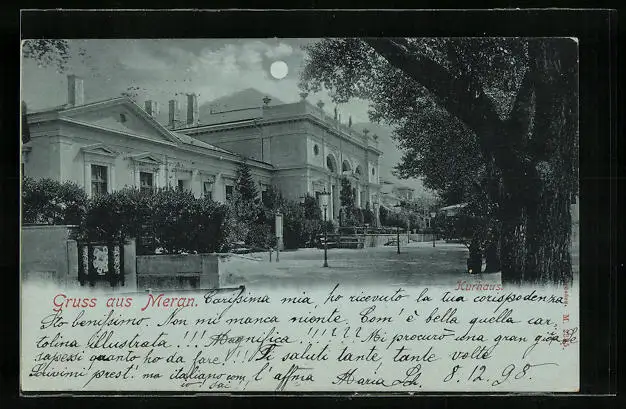 Kurhaus.
Gruss aus Meran. Carissima mia, ho ricevuto la tua corrispodenza
Sto benissimo. Non mi manca niente. Com' è bella quella car
tolina illustrata !!! Magnifica !!!!!! Mi procurò una gran gioja Se
sapessi quanto ho da fare!!! Ti saluti tante tante volte
Scrivimi prest! ma italiano l'affma Maria 8.12.98.